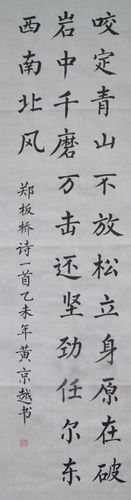 咬定青山不放松立身原在破
岩中千磨万击还坚劲任尔东
西南北风
郑板桥诗一首乙未年黄京越书